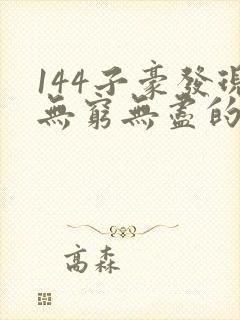 144子豪發現
無窮無盡的
高森